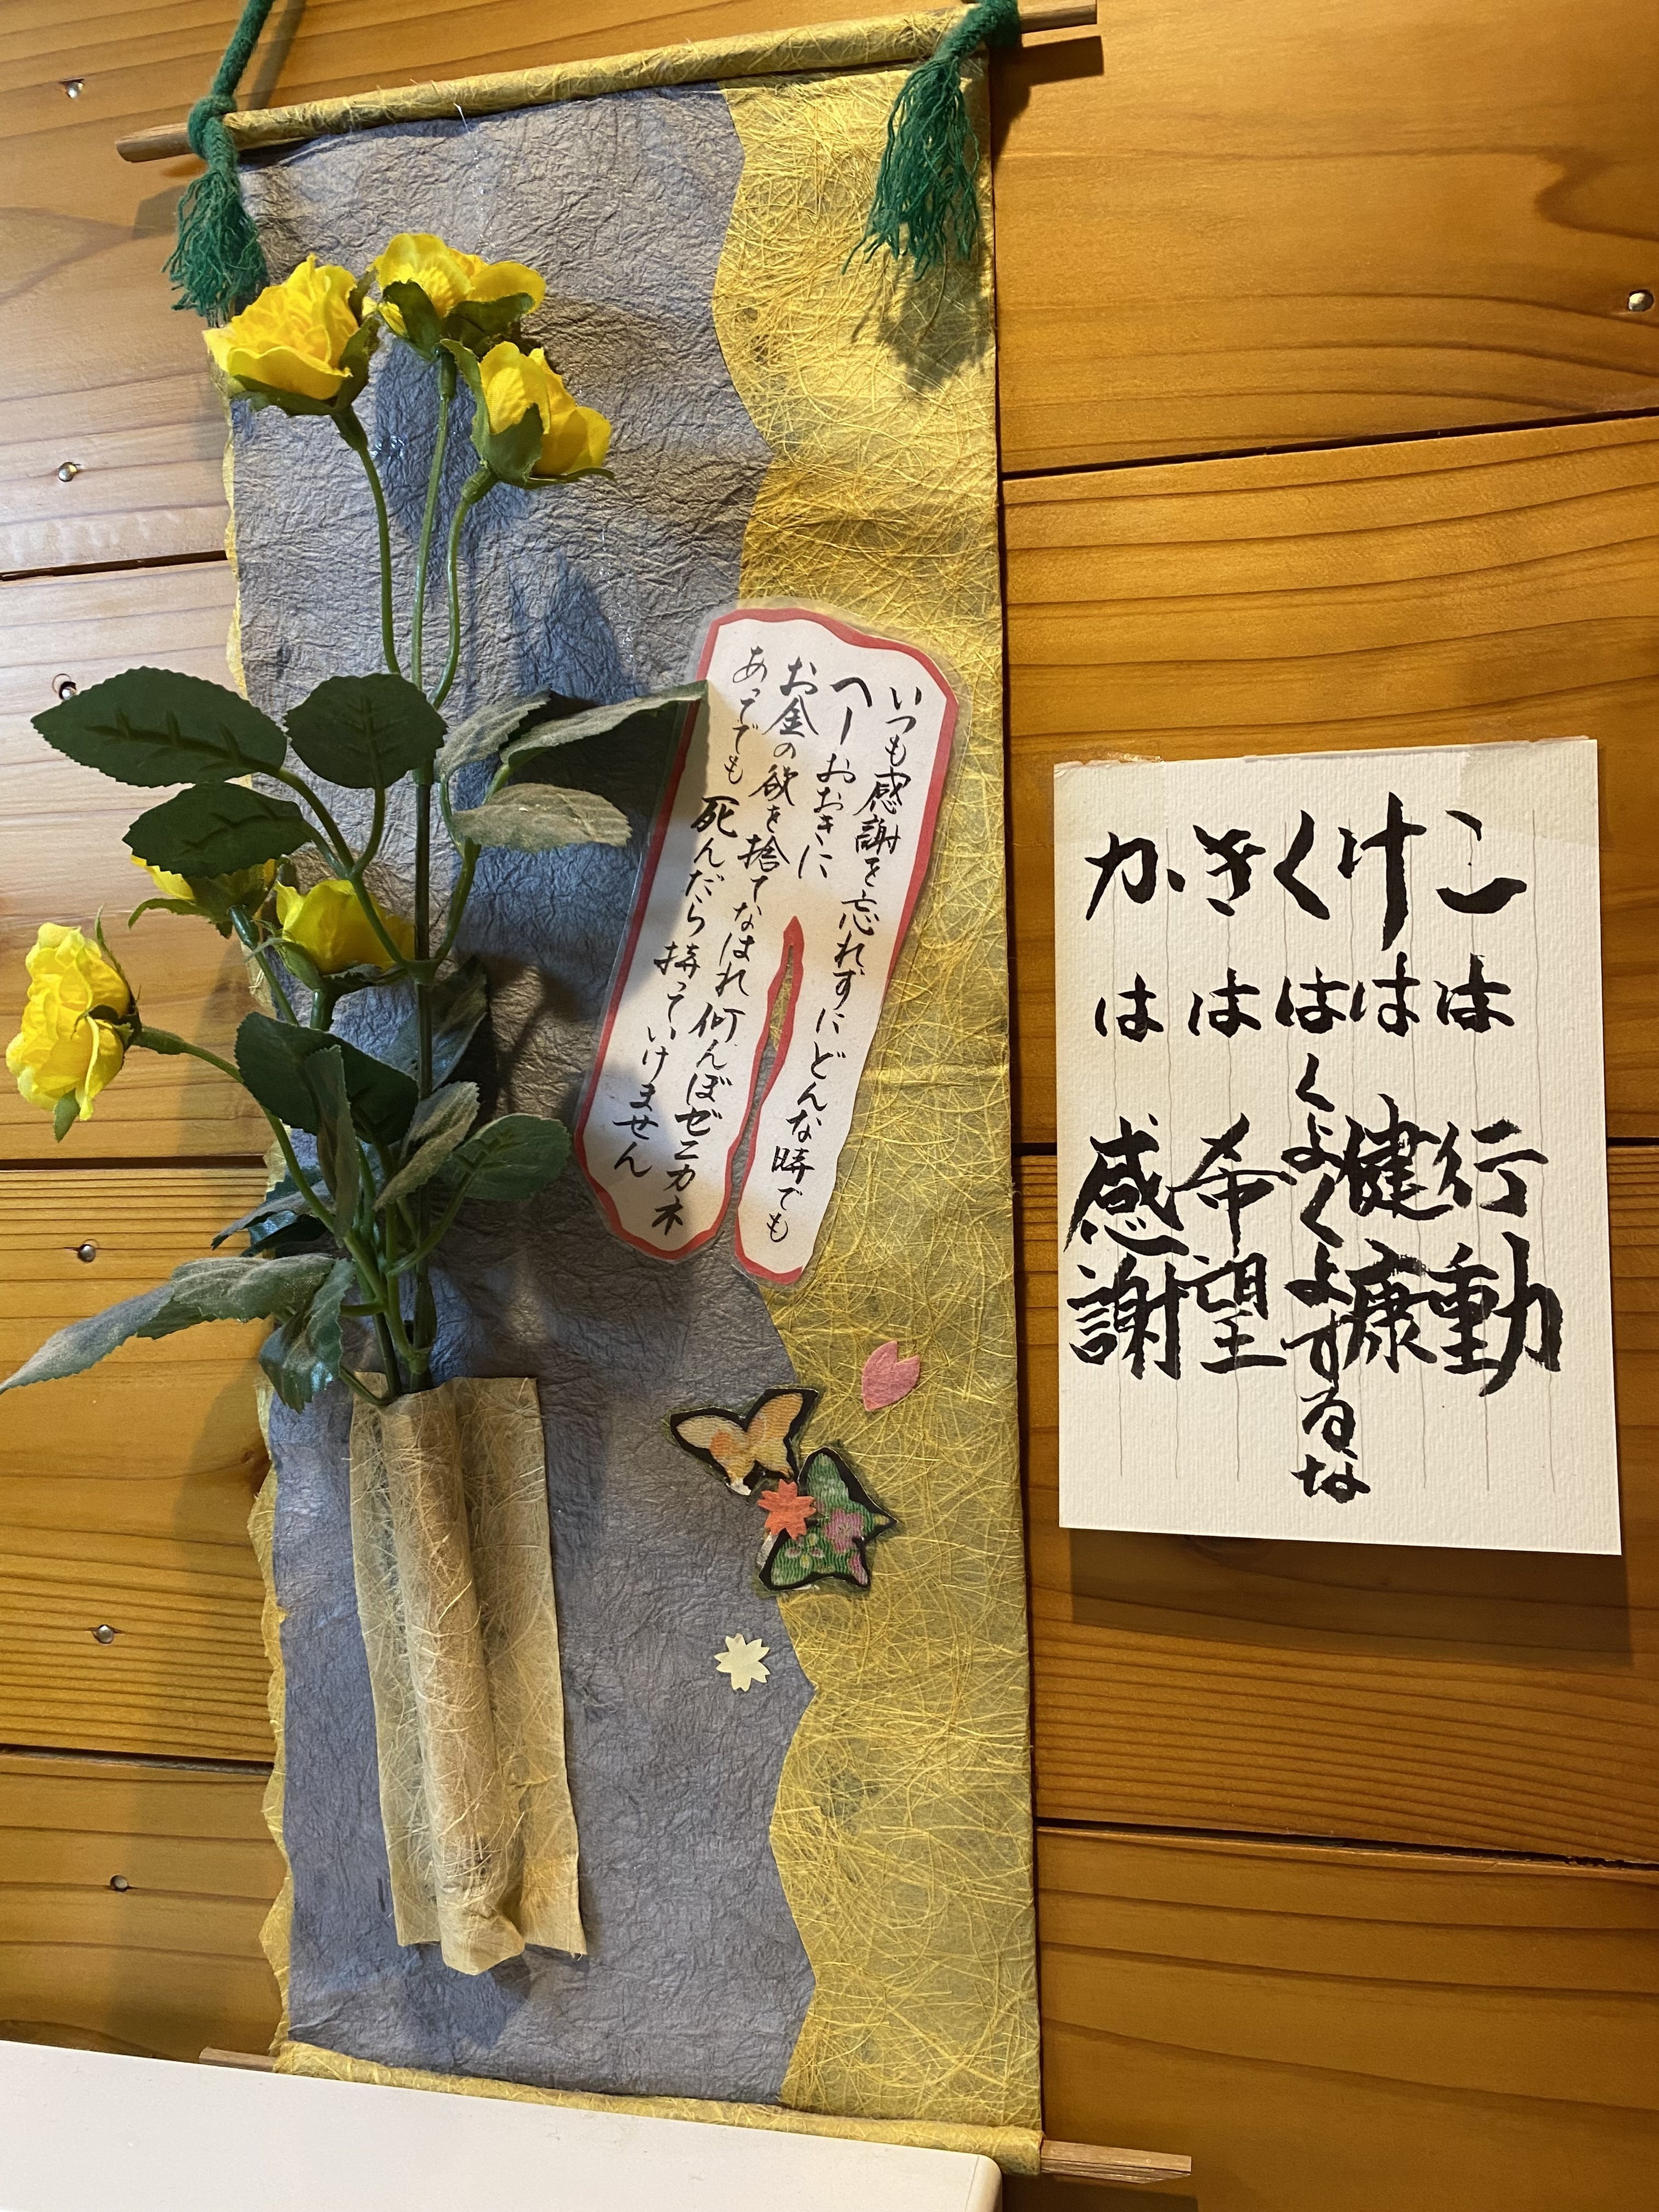 いつも感謝を忘れずにどんな時でも
へーおおきに
お金の欲を捨てなはれ何んぼゼニカネ
あってでも死んだら持っていけません
こは行動
けは健康
くはくよくよするな
きは希望
かは感謝